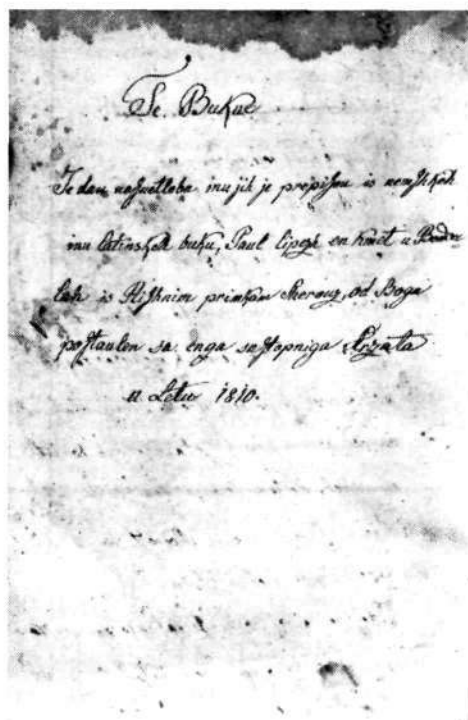 Te Bukve
Je dau na svetloba inu jih je prepisou is nemshkeh
inu latinskeh buku, Paul lipezh en kmet u
lah is Hishnim primkam od Boga
postaulen sa enga sastopniga Arzata
u Letu 1810.